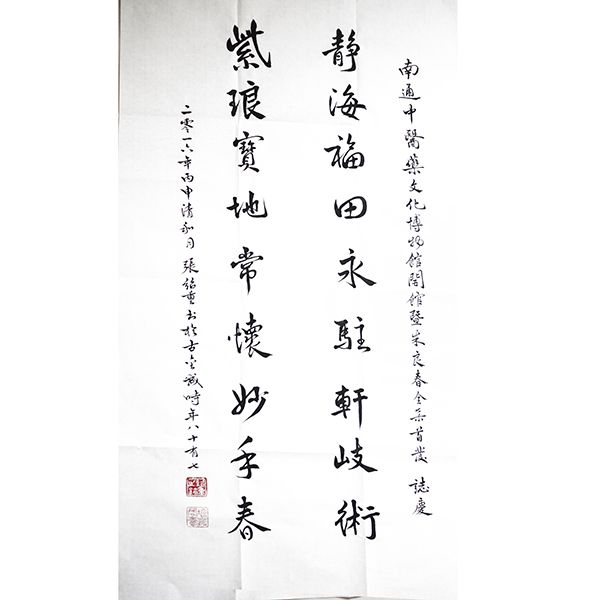 南通中醫藥文化博物館開館暨朱良春全集首發 誌慶
靜海福田永駐軒岐術
紫琅寶地常懷妙手春
二零一六年丙申清和月 張紹重书於古金城時年八十有七